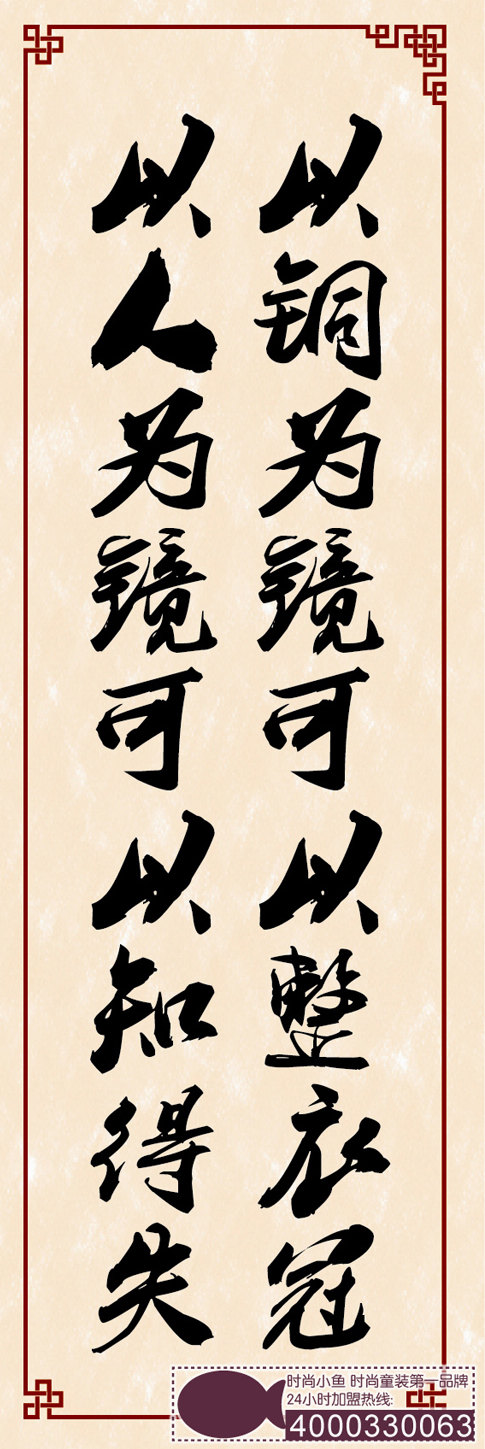 以铜为镜可以整衣冠
以人为镜可以知得失
时尚小鱼 时尚童装第一品牌
24小时加盟热线:
4000330063